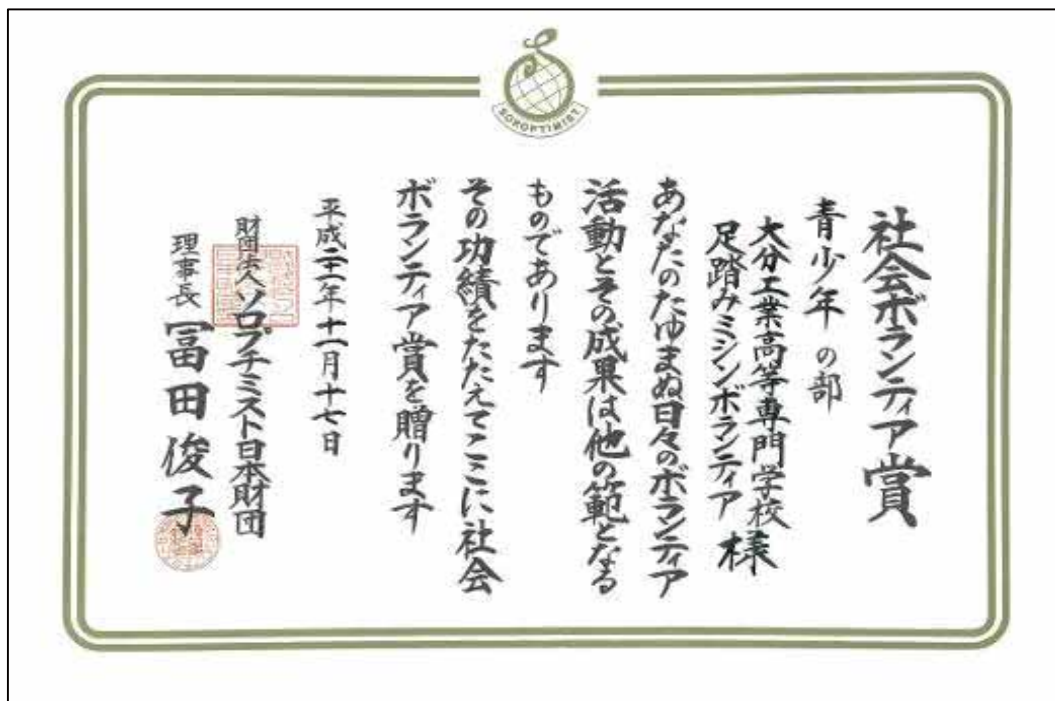 SOROPTIMIST
社会ボランティア賞
青少年の部
大分工業高等専門学校
足踏みミシンボランティア 様
あなたのたゆまぬ日々のボランティア
活動とその成果は他の範となる
ものであります
その功績をたたえてここに社会
ボランティア賞を贈ります
平成二十一年十一月十七日
財団法人ソロプチミスト日本財団
理事長 冨田俊子